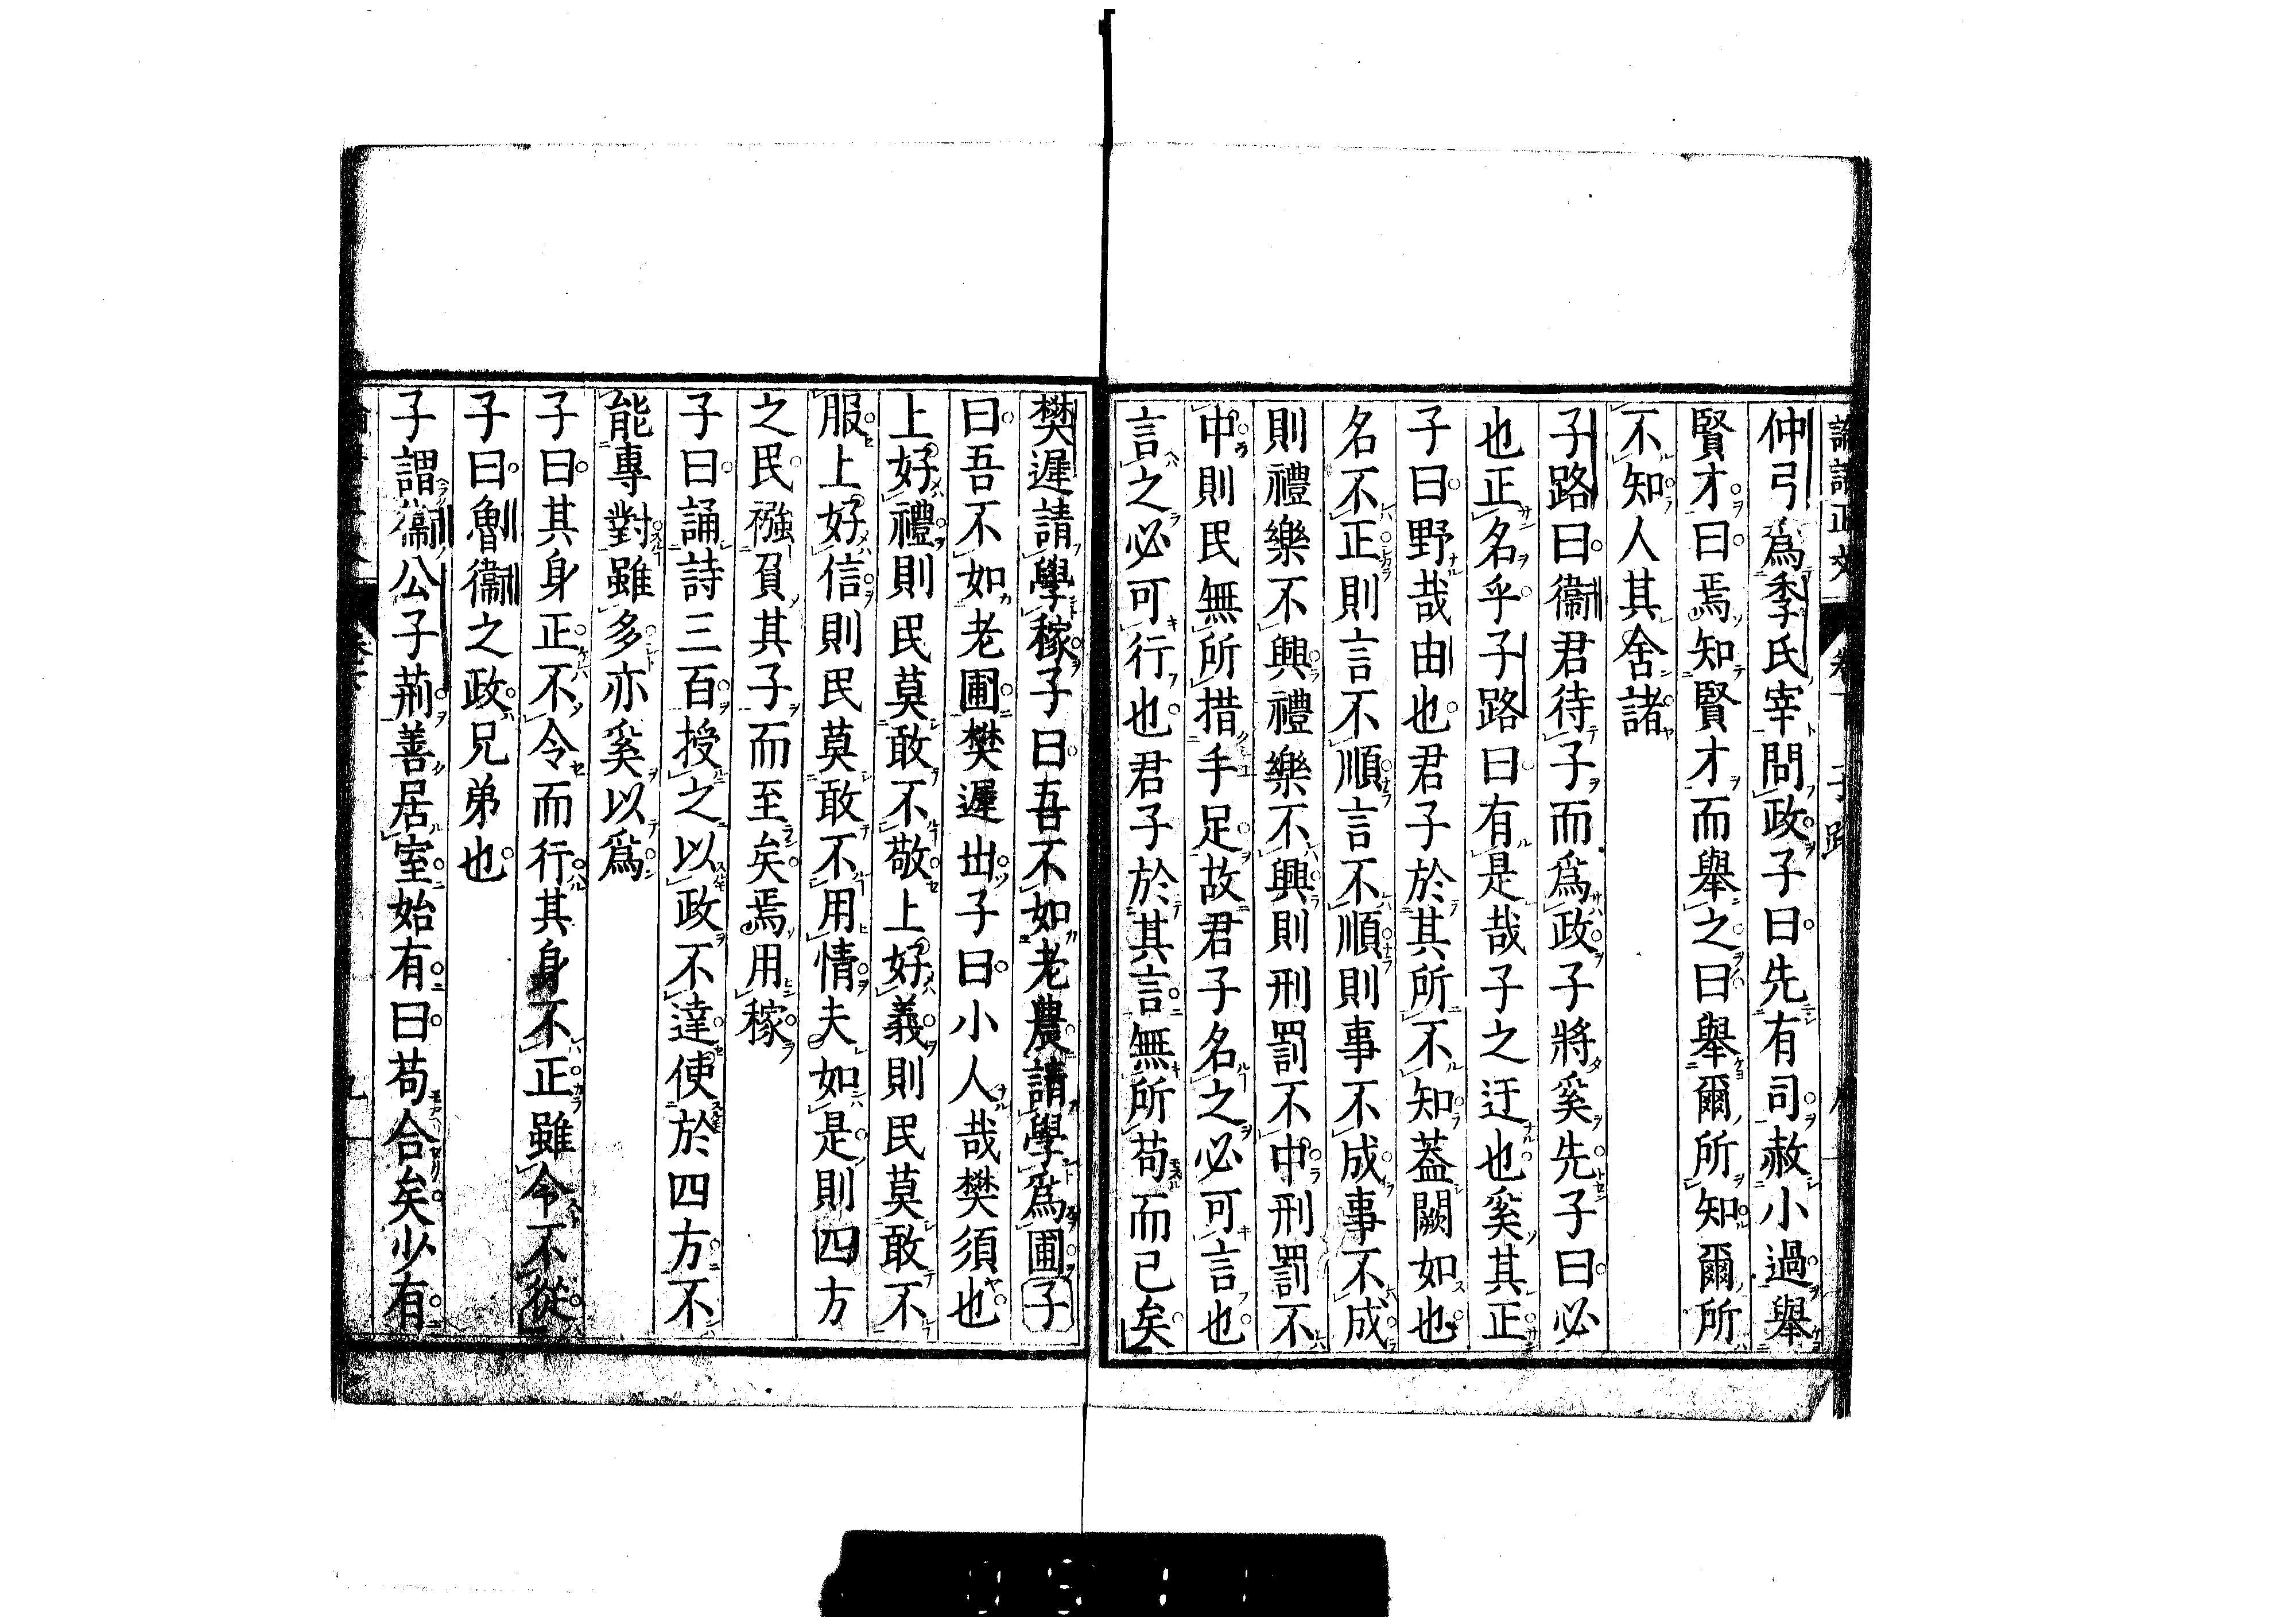 仲弓爲季氏宰問政子曰先有司赦小過舉
賢才曰焉知賢才而舉之曰舉爾所知爾所
不知人其舍諸
子路曰衞君待子而爲政子將奚先子曰必
也正名乎子路曰有是哉子之迂也奚其正
子曰野哉由也君子於其所不知蓋闕如也
名不正則言不順言不順則事不成事不成
則禮樂不興禮樂不興則刑罰不中刑罰不
中則民無所措手足故君子名之必可言也
言之必可行也君子於其言無所苟而已矣
樊遲請學稼子曰吾不如老農請學爲圃子
曰吾不如老圃樊遲出子曰小人哉樊須也
上好禮則民莫敢不敬上好義則民莫敢不
服上好信則民莫敢不用情夫如是則四方
之民襁負其子而至矣焉用稼
子曰誦詩三百授之以政不達使於四方不
能專對雖多亦奚以爲
子曰其身正不令而行其身不正雖令不從
子曰魯衞之政兄弟也
子謂衞公子荊善居室始有曰苟合矣少有